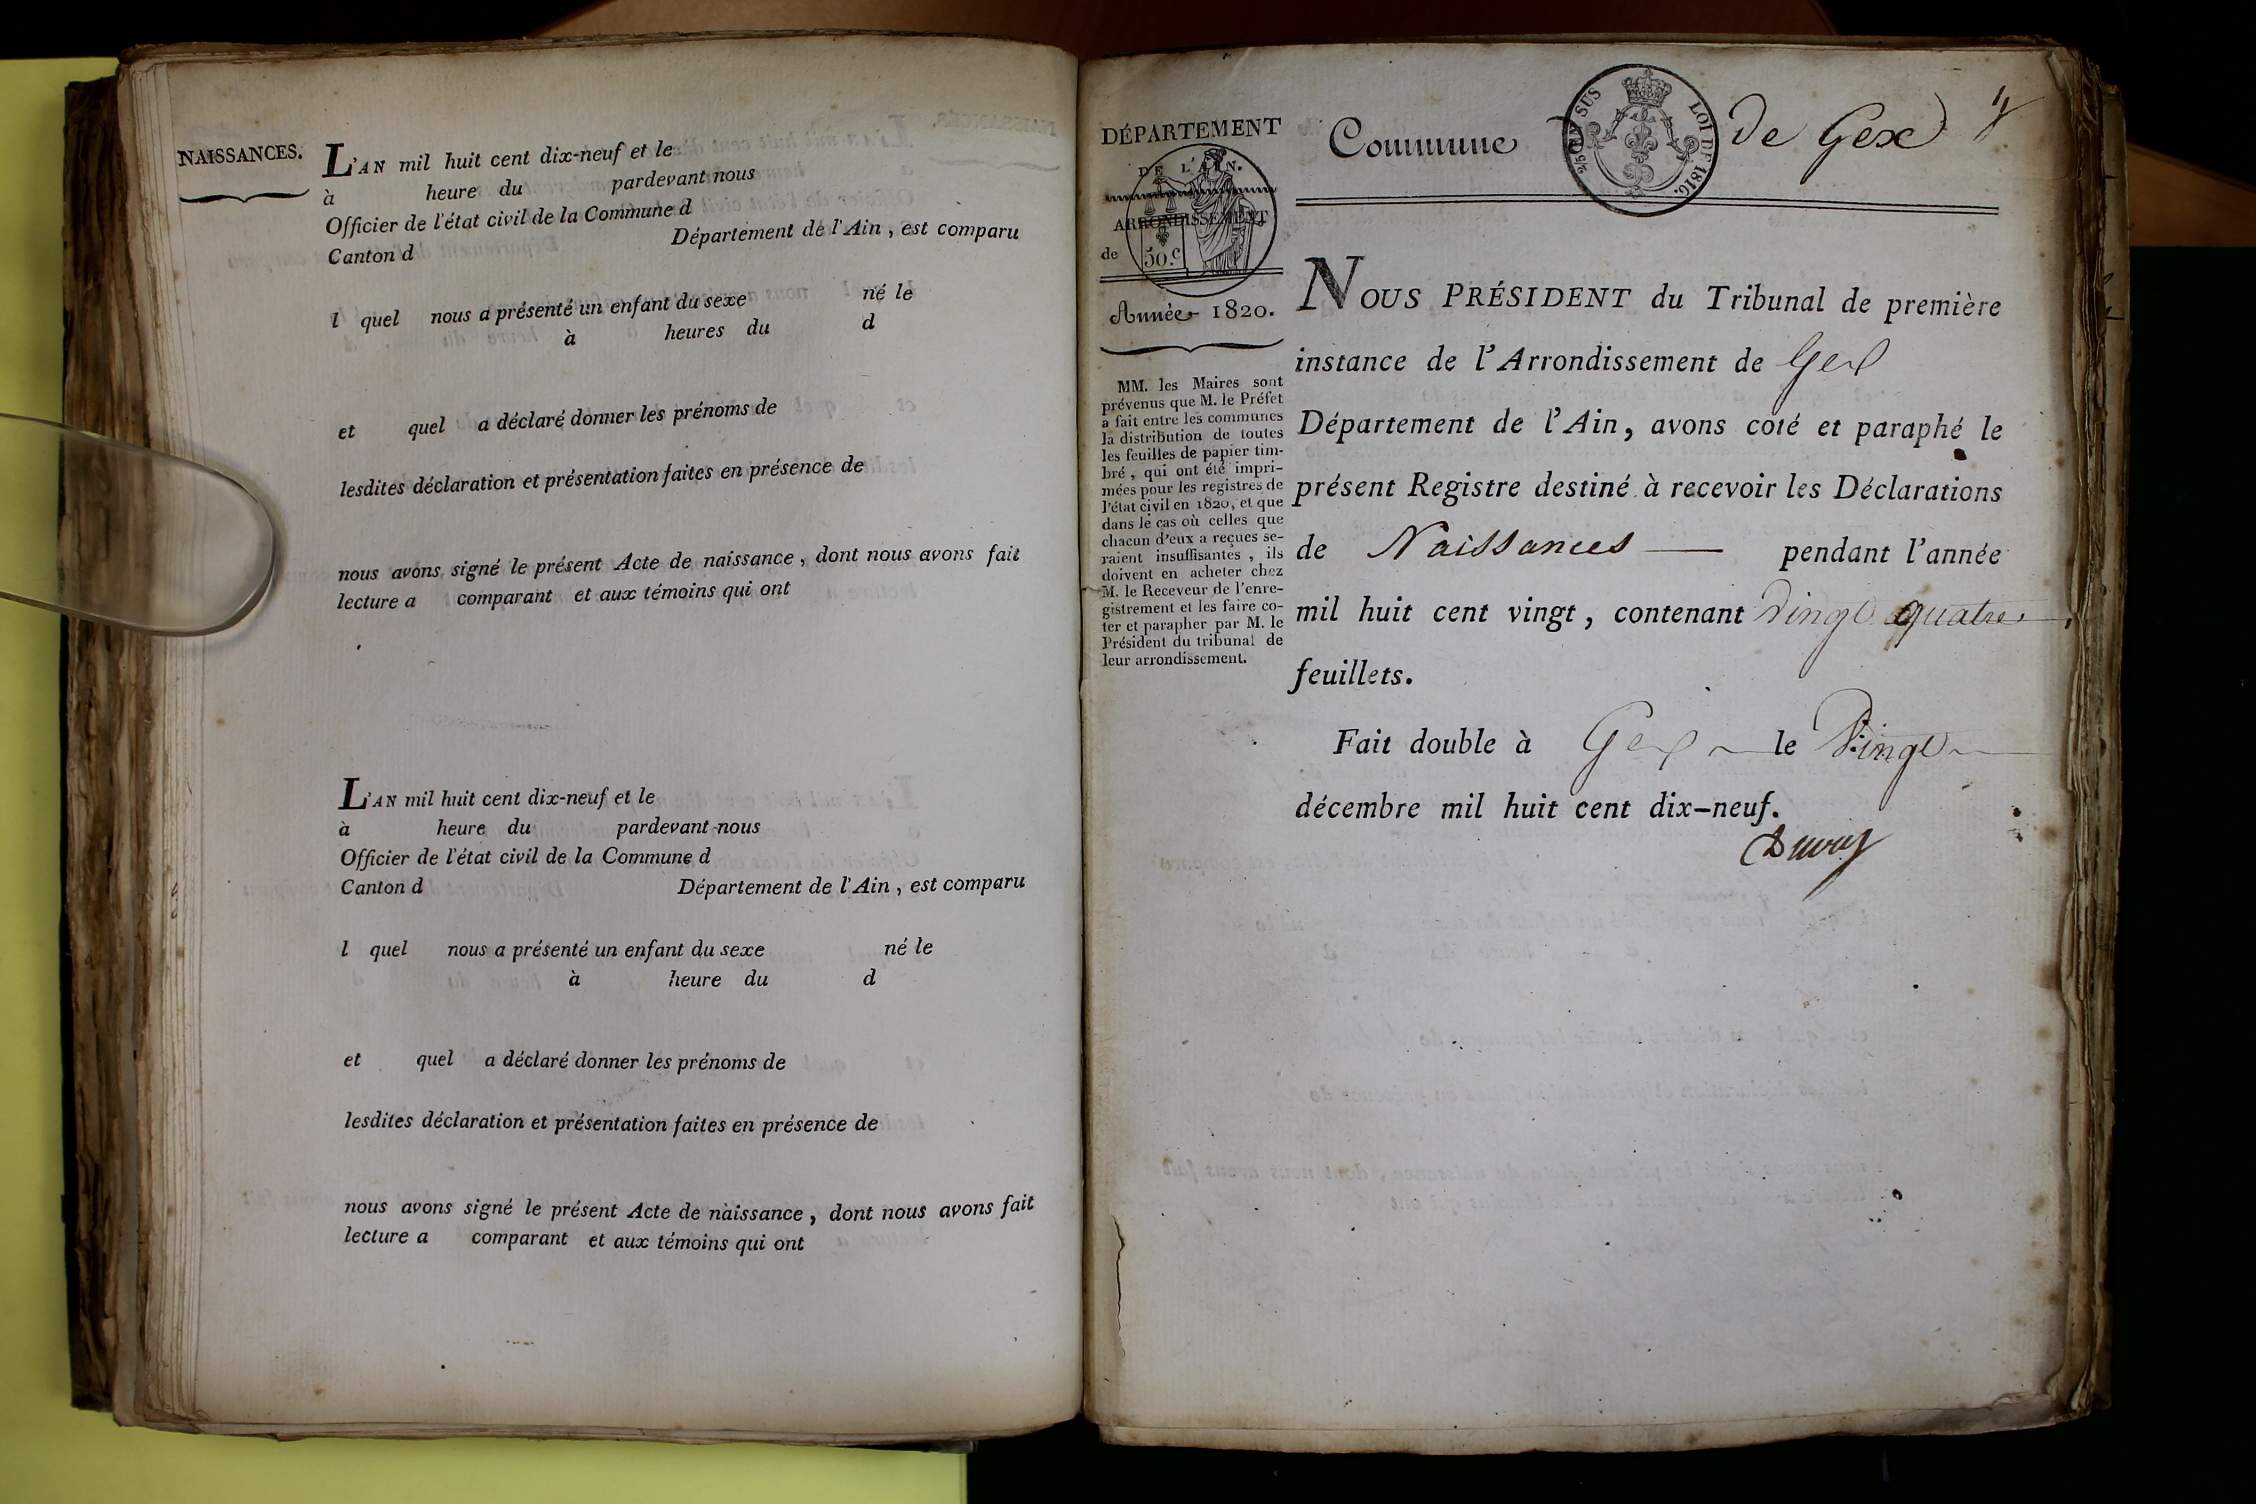 NAISSANCES.
L'AN mil huit cent dix-neuf et le
à heure du pardevant nous
Officier de l'état civil de la Commune d
Canton d Département de l'Ain, est comparu
l quel nous a présenté un enfant du sexe né le
à heures du d
et quel a déclaré donner les prénoms de
lesdites déclaration et présentation faites en présence de
nous avons signé le présent Acte de naissance, dont nous avons fait
lecture a comparant et aux témoins qui ont
L'AN mil huit cent dix-neuf et le
à heure du pardevant nous
Officier de l'état civil de la Commune d
Canton d Département de l'Ain, est comparu
l quel nous a présenté un enfant du sexe né le
à heure du d
et quel a déclaré donner les prénoms de
lesdites déclaration et présentation faites en présence de
nous avons signé le présent Acte de naissance, dont nous avons fait
lecture a comparant et aux témoins qui ont
DÉPARTEMENT
DE L'AIN.
ARRONDISSEMENT
de
50.c
Année 1820.
MM. les Maires sont
prévenus que M. le Préfet
a fait entre les communes
la distribution de toutes
les feuilles de papier tim-
bré, qui ont été impri-
mées pour les registres de
l'état civil en 1820, et que
dans le cas où celles que
chacun d'eux a reçues se-
raient insuffisantes, ils
doivent en acheter chez
M. le Receveur de l'enre-
gistrement et les faire co-
ter et parapher par M. le
Président du tribunal de
leur arrondissement.
Commune de Gex
EN SUS
LOI DE 1816.
NOUS PRÉSIDENT du Tribunal de première
instance de l'Arrondissement de Gex
Département de l'Ain, avons coté et paraphé le
présent Registre destiné à recevoir les Déclarations
de Naissances pendant l'année
mil huit cent vingt, contenant vingt quatre,
feuillets.
Fait double à Gex le vingt
décembre mil huit cent dix-neuf.